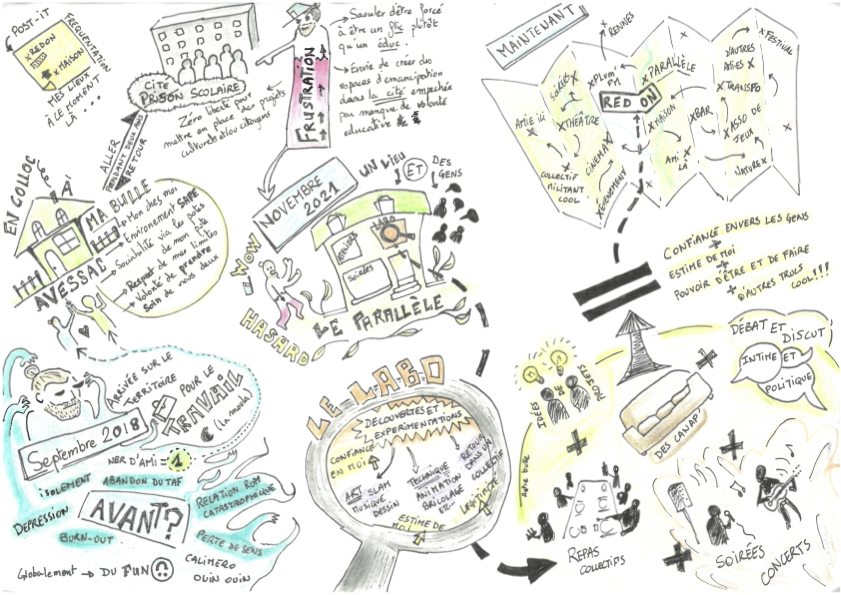 POST-IT
xREDON
xMAISON
FREQUENTATION
MES LIEUX
À CE MOMENT
LÀ ...
CITÉ
PRISON SCOLAIRE
Zéro liberté pour
mettre en place des projets
culturels et/ou citoyens
FRUSTRATION
→ Saouler d'être forcé
à être un flic plutôt
qu'un éduc.
→ Envie de créer des
espaces d'émancipation
dans la cité empechée
par manque de volonté
educative
ALLER
RETOUR
PENDANT DEUX ANS
EN COLLOC
À
AVESSAC
MA BULLE
→ Mon chez moi
→ Environement SAFE
→ Sociabilité via les potes
de mon pote
→ Respect de mes limites
→ Volonté de prendre
soin de nous deux
NOVEMBRE
2021
UN LIEU
ET
DES
GENS
WOW
HASARD
ATELIERS
LABO
SOIRÉES
LE PARALLÈLE
Septembre 2018
ARRIVÉE SUR LE
TERRITOIRE
POUR LE
TRAVAIL
(la moula)
NBR D'AMI = 1
ISOLEMENT
ABANDON DU TAF
DEPRESSION
AVANT?
RELATION ROM
CATASTROPHIQUE
BURN-OUT
PERTE DE SENS
CALIMERO
OUIN OUIN
Globalement → DU FUN
LE LABO
DÉCOUVERTES ET
EXPÉRIMENTATIONS
CONFIANCE
EN MOI
ART SLAM
MUSIQUE
DESSIN
TECHNIQUE
ANIMATION
BRICOLAGE
ETC...
RETOUR
DANS UN
COLLECTIF
ESTIME DE
MOI
LEGITIMITÉ
MAINTENANT
RENNES
SOIRÉES
PLUM
FM
xPARALLÈLE
D'AUTRES
ARTIES x
xFESTIVAL
REDON
AMIE ICI
xTHÉÂTRE
xMAISON
xTRANSFO
xBAR
CINEMA
xASSO DE
JEUX
COLLECTIF
MILITANT
COOL
AMI
LÀ
xEVENEMENT
NATURE x
=
CONFIANCE ENVERS LES GENS
+
ESTIME DE MOI
+
POUVOIR D'ÊTRE ET DE FAIRE
+
D'AUTRES TRUCS
COOL!!!
IDÉES
PROJETS
+
DEBAT ET DISCUT
INTIME ET
POLITIQUE
DES CANAP'
+
+
Autre bulle
REPAS
COLLECTIFS
+
SOIRÉES
CONCERTS